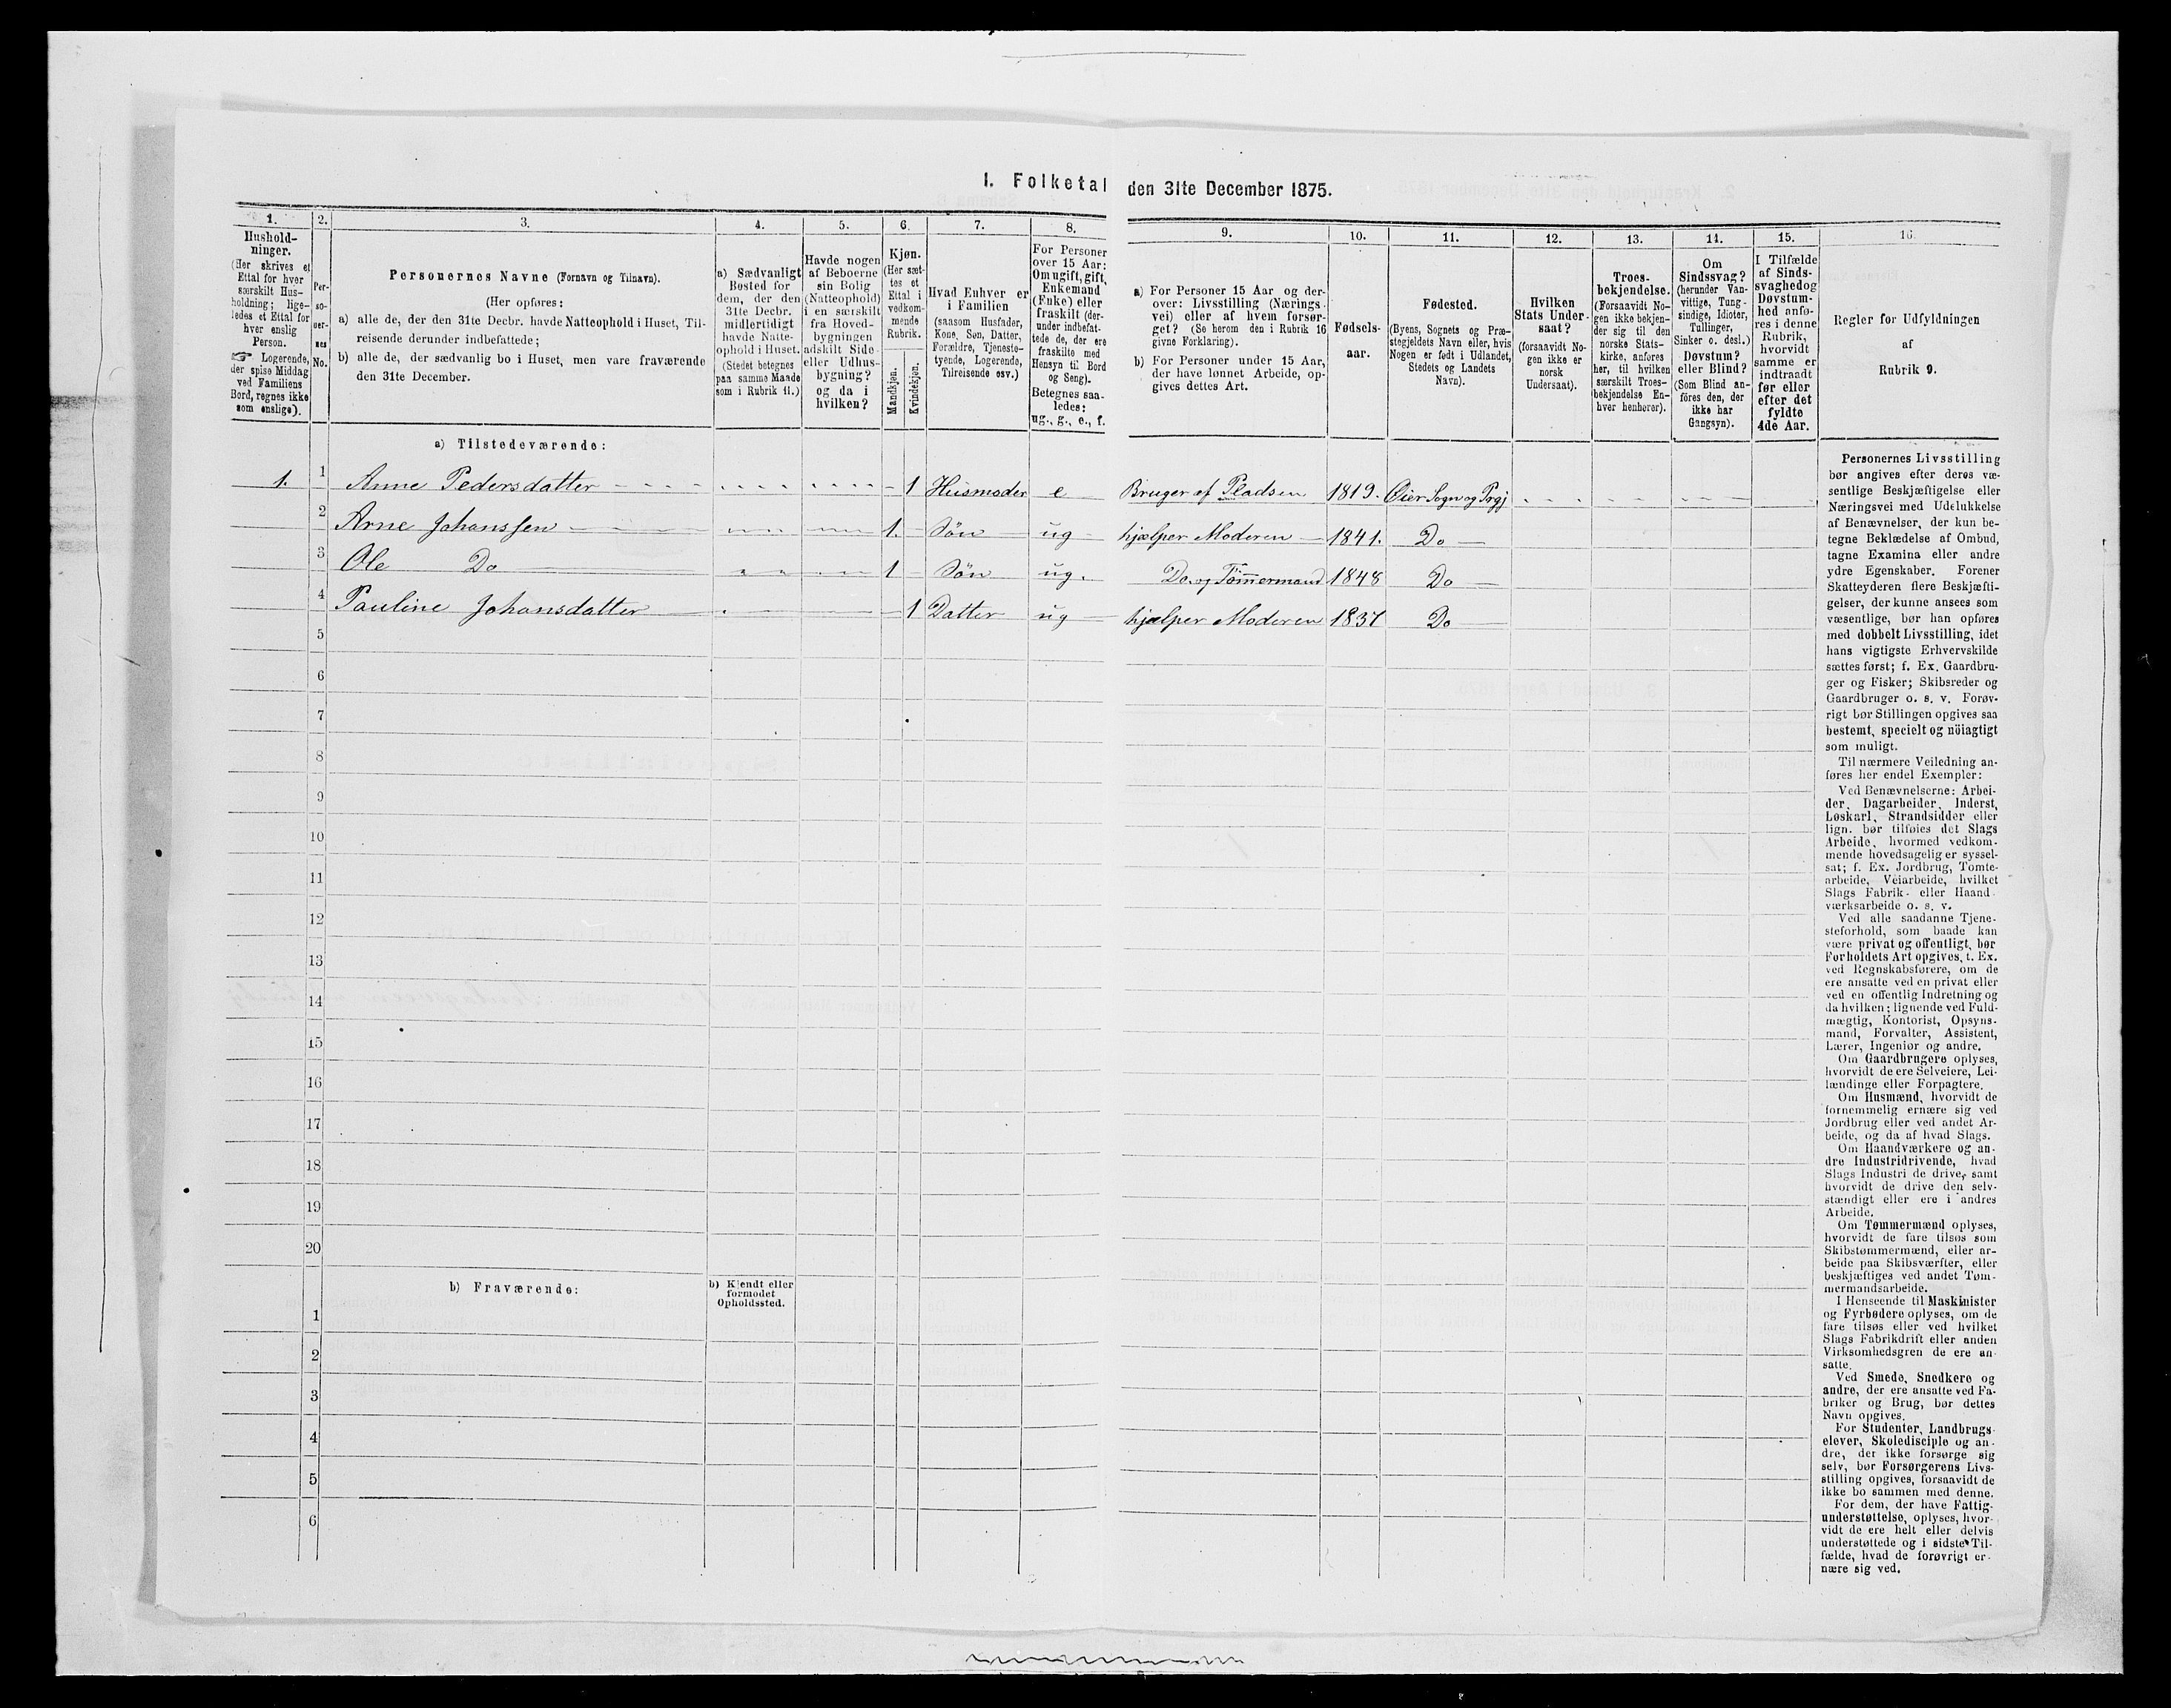 I. Folketal den 31te December 1875.
1.
Hushold-
ninger.
(Her skrives et
Ettal for hver
særskilt Hus-
holdning; lige-
ledes et Ettal for
hver enslig
Person.
☞ Logerende,
der spise Middag
ved Familiens
Bord, regnes ikke
som enslige).
2.
Per-
so-
ner-
nes
No.
3.
Personernes Navne (Fornavn og Tilnavn).
(Her opføres:
a) alle de, der den 31te Decbr. havde Natteophold i Huset, Til-
reisende derunder indbefattede;
b) alle de, der sædvanlig bo i Huset, men vare fraværende
den 31te December.
4.
a) Sædvanligt
Bosted for
dem, der den
31te Decbr.
midlertidigt
havde Natte-
ophold i Huset.
(Stedet betegnes
paa samme Maade
som i Rubrik 11.)
5.
Havde nogen
af Beboerne
sin Bolig
(Natteophold)
i en særskilt
fra Hoved-
bygningen
adskilt Side-
eller Udhus-
bygning?
og da i
hvilken?
6.
Kjøn.
(Her sæt-
tes et
Ettal i
vedkom-
mende
Rubrik.
Mandkjøn.
Kvindekjøn.
7.
Hvad Enhver er
i Familien
(saasom Husfader,
Kone, Søn, Datter,
Forældre, Tjeneste-
tyende, Logerende,
Tilreisende osv.)
8.
For Personer
over 15 Aar:
Om ugift, gift,
Enkemand
(Enke) eller
fraskilt (der-
under indbefat-
tede de, der ere
fraskilte med
Hensyn til Bord
og Seng).
Betegnes saa-
ledes:
ug., g., e., f.
9.
a) For Personer 15 Aar og der-
over: Livsstilling (Nærings-
vei) eller af hvem forsør-
get? (Se herom den i Rubrik 16
givne Forklaring).
b) For Personer under 15 Aar,
der have lønnet Arbeide, op-
gives dettes Art.
10.
Fødsels-
aar.
11.
Fødested.
(Byens, Sognets og Præ-
stegjeldets Navn eller, hvis
Nogen er født i Udlandet,
Stedets og Landets
Navn).
12.
Hvilken
Stats Under-
saat?
(forsaavidt No-
gen ikke er
norsk
Undersaat).
13.
Troes-
bekjendelse.
(Forsaavidt No-
gen ikke bekjen-
der sig til den
norske Stats-
kirke, anføres
her, til hvilken
særskilt Troes-
bekjendelse En-
hver henhører).
14.
Om
Sindssvag?
(herunder Van-
vittige, Tung-
sindige, Idioter,
Tullinger,
Sinker o. desl.)
Døvstum?
eller Blind?
(Som Blind an-
føres den, der
ikke har
Gangsyn).
15.
I Tilfælde
af Sinds-
svaghed og
Døvstum-
hed anfø-
res i denne
Rubrik,
hvorvidt
samme er
indtraadt
før eller
efter det
fyldte
4de Aar.
16.
Regler for Udfyldningen
af
Rubrik 9.
a) Tilstedeværende:
1. 1 Anne Pedersdatter 1 Husmoder e Bruger af Pladsen 1819. Øier Sogn og Prgj
2 Arne Johanssen 1. Søn ug hjælper Moderen 1841. Do
3 Ole Do 1 Søn ug. Do. og Tömmermand 1848 Do
4 Pauline Johansdatter 1 Datter ug hjælper Moderen 1837 Do
5
6
7
8
9
10
11
12
13
14
15
16
17
18
19
20
b) Fraværende:
b) Kjendt eller
formodet
Opholdssted.
1
2
3
4
5
6
Personernes Livsstilling
bør angives efter deres væ-
sentlige Beskjæftigelse eller
Næringsvei med Udelukkelse
af Benævnelser, der kun be-
tegne Beklædelse af Ombud,
tagne Examina eller andre
ydre Egenskaber. Forener
Skatteyderen flere Beskjæfti-
gelser, der kunne ansees som
væsentlige, bør han opføres
med dobbelt Livsstilling, idet
hans vigtigste Erhvervskilde
sættes først; f. Ex. Gaardbru-
ger og Fisker; Skibsreder og
Gaardbruger o. s. v. Forøv-
rigt bør Stillingen opgives saa
bestemt, specielt og nöiagtigt
som muligt.
Til nærmere Veiledning an-
føres her endel Exempler:
Ved Benævnelserne: Arbei-
der, Dagarbeider, Inderst,
Løskarl, Strandsidder eller
lign. bør tilføies det Slags
Arbeide, hvormed vedkom-
mende hovedsagelig er syssel-
sat; f. Ex. Jordbrug, Tomte-
arbeide, Veiarbeide, hvilket
Slags Fabrik- eller Haand-
værksarbeide o. s. v.
Ved alle saadanne Tjene-
steforhold, som baade kan
være privat og offentligt, bør
Forholdets Art opgives, t. Ex.
ved Regnskabsførere, om de
ere ansatte ved en privat eller
ved en offentlig Indretning og
da hvilken; lignende ved Fuld-
mægtig, Kontorist, Opsyns-
mand, Forvalter, Assistent,
Lærer, Ingeniør og andre.
Om Gaardbrugere oplyses,
hvorvidt de ere Selveiere, Lei-
lændinge eller Forpagtere.
Om Husmænd, hvorvidt de
fornemmelig ernære sig ved
Jordbrug eller ved andet Ar-
beide, og da af hvad Slags.
Om Haandværkere og an-
dre Industridrivende, hvad
Slags Industri de drive, samt
hvorvidt de drive den selv-
stændigt eller ere i andres
Arbeide.
Om Tømmermænd oplyses,
hvorvidt de fare tilsøs som
Skibstømmermænd, eller ar-
beide paa Skibsværfter, eller
beskjæftiges ved andet Tøm-
mermandsarbeide.
I Henseende til Maskinister
og Fyrbødere oplyses, om de
fare tilsøs eller ved hvilket
Slags Fabrikdrift eller anden
Virksomhedsgren de ere an-
satte.
Ved Smede, Snedkere og
andre, der ere ansatte ved Fa-
briker og Brug, bør dettes
Navn opgives.
For Studenter, Landbrugs-
elever, Skoledisciple og an-
dre, der ikke forsørge sig
selv, bør Forsørgerens Livs-
stilling opgives, forsaavidt de
ikke bo sammen med denne.
For dem, der have Fattig-
understøttelse, oplyses, hvor-
vidt de ere helt eller delvis
understøttede og i sidste Til-
fælde, hvad de forøvrigt er-
nære sig ved.